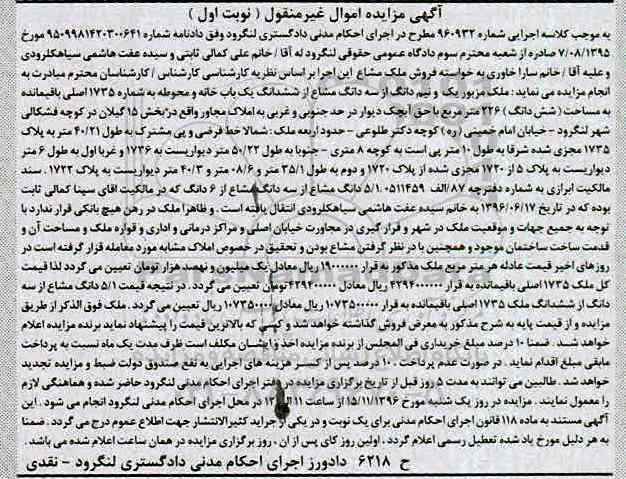 آگهی مزایده اموال غیرمنقول ( نوبت اول )
به موجب کلاسه اجرایی شماره ۹۶۰۹۳۲ مطرح در اجرای احکام مدنی دادگستری لنگرود وفق دادنامه شماره ۹۵۰۹۹۸۱۴۲۰۳۰۰۶۴۱ مورخ
۷/۰۸/۱۳۹۵ صادره از شعبه محترم سوم دادگاه عمومی حقوقی لنگرود له آقا / خانم علی کمالی ثابتی و سیده عفت هاشمی سیاهکلرودی
و علیه آقا / خانم سارا خاوری به خواسته فروش ملک مشاع این اجرا بر اساس نظریه کارشناسی کارشناس / کارشناسان محترم مبادرت به
انجام مزایده می نماید : ملک مزبور یک و نیم دانگ از سه دانگ مشاع از ششدانگ یک باب خانه و محوطه به شماره ۱۷۳۵ اصلی باقیمانده
به مساحت ( شش دانگ ) ۲۲۶ متر مربع با حق ابچک دیوار در حد جنوبی و غربی به املاک مجاور واقع در بخش ۱۵ گیلان در کوچه فشکالی
شهر لنگرود - خیابان امام خمینی (ره ) کوچه دکتر طلوعی - حدود اربعه ملک : شمالا خط فرضی و پی مشترک به طول ۴۰/۲۱ متر به پلاک
۱۷۳۵ مجزی شده شرقا به طول ۱۰ متر پی است به کوچه ۸ متری - جنوبا به طول ۵۰/۲۲ متر دیواریست به ۱۷۳۶ و غربا اول به طول ۶ متر
دیواریست به پلاک ۵ از ۱۷۲۰ مجزی شده از پلاک ۱۷۲۰ و دوم به طول ۳۵/۱ متر و ۰۸/۶ متر و ۴۰/۳ متر دیواریست به پلاک ۱۷۲۳ . سند
مالکیت ابرازی به شماره دفترچه ۸۷/الف ۰۵۱۱۴۵۹ ۵/۱ دانگ مشاع از سه دانگ مشاع از ۶ دانگ که در مالکیت اقای سینا کمالی ثابت
بوده که در تاریخ ۱۳۹۶/۰۶/۱۷ به خانم سیده عفت هاشمی سیاهکلرودی انتقال یافته است . و ظاهرا ملک در رهن هیچ بانکی قرار ندارد با
توجه به جمیع جهات و موقعیت ملک در شهر و قرار گیری در مجاورت خیابان اصلی و مراکز درمانی و اداری و قواره ملک و مساحت آن و
قدمت ساخت ساختمان موجود و همچنین با در نظر گرفتن مشاع بودن و تحقیق در خصوص املاک مشابه مورد معامله قرار گرفته است در
روزهای اخیر قیمت عادله هر متر مربع ملک مذکور به قرار ۱۹۰۰۰۰۰۰ ریال معادل یک میلیون و نهصد هزار تومان تعیین می گردد لذا قیمت
کل ملک ۱۷۳۵ اصلی باقیمانده به قرار ۴۲۹۴۰۰۰۰۰۰ ریال معادل ۴۲۹۴۰۰۰۰۰ تومان تعیین می گردد . در نتیجه قیمت ۵/۱ دانگ مشاع از سه
دانگ از ششدانگ ملک ۱۷۳۵ اصلی باقیمانده به قرار ۱۰۷۳۵۰۰۰۰۰ ریال معادل ۱۰۷۳۵۰۰۰۰ تعیین می گردد . ملک فوق الذکر از طریق
مزایده و از قیمت پایه به شرح مذکور به معرض فروش گذاشته خواهد شد و کسی که بالاترین قیمت را پیشنهاد نماید برنده مزایده اعلام
خواهد شد . ضمنا ۱۰ درصد مبلغ خریداری فی المجلس از برنده مزایده اخذ و ایشان مکلف است ظرف مدت یک ماه نسبت به پرداخت
مابقی مبلغ اقدام نماید . در صورت عدم پرداخت ۱۰ درصد پس از کسر هزینه های اجرایی به نفع صندوق دولت ضبط و مزایده تجدید
خواهد شد . طالبین می توانند به مدت ۵ روز قبل از تاریخ برگزاری مزایده در دفتر اجرای احکام مدنی لنگرود حاضر شده و هماهنگی لازم
را معمول نمایند . مزایده در روز یک شنبه مورخ ۱۵/۱۱/۱۳۹۶ از ساعت ۱۱ الی ۱۲ در محل اجرای احکام مدنی لنگرود انجام می شود . این
آگهی مستند به ماده ۱۱۸ قانون اجرای احکام مدنی برای یک نوبت و در یکی از جراید کثیرالانتشار جهت اطلاع عموم درج می گردد . ضمنا
به هر دلیل مورخ یاد شده تعطیل رسمی اعلام گردد . اولین روز کاری پس از ان ، روز برگزاری مزایده در همان ساعت اعلام شده می باشد .
ح ۶۲۱۸ دادورز اجرای احکام مدنی دادگستری لنگرود - نقدی